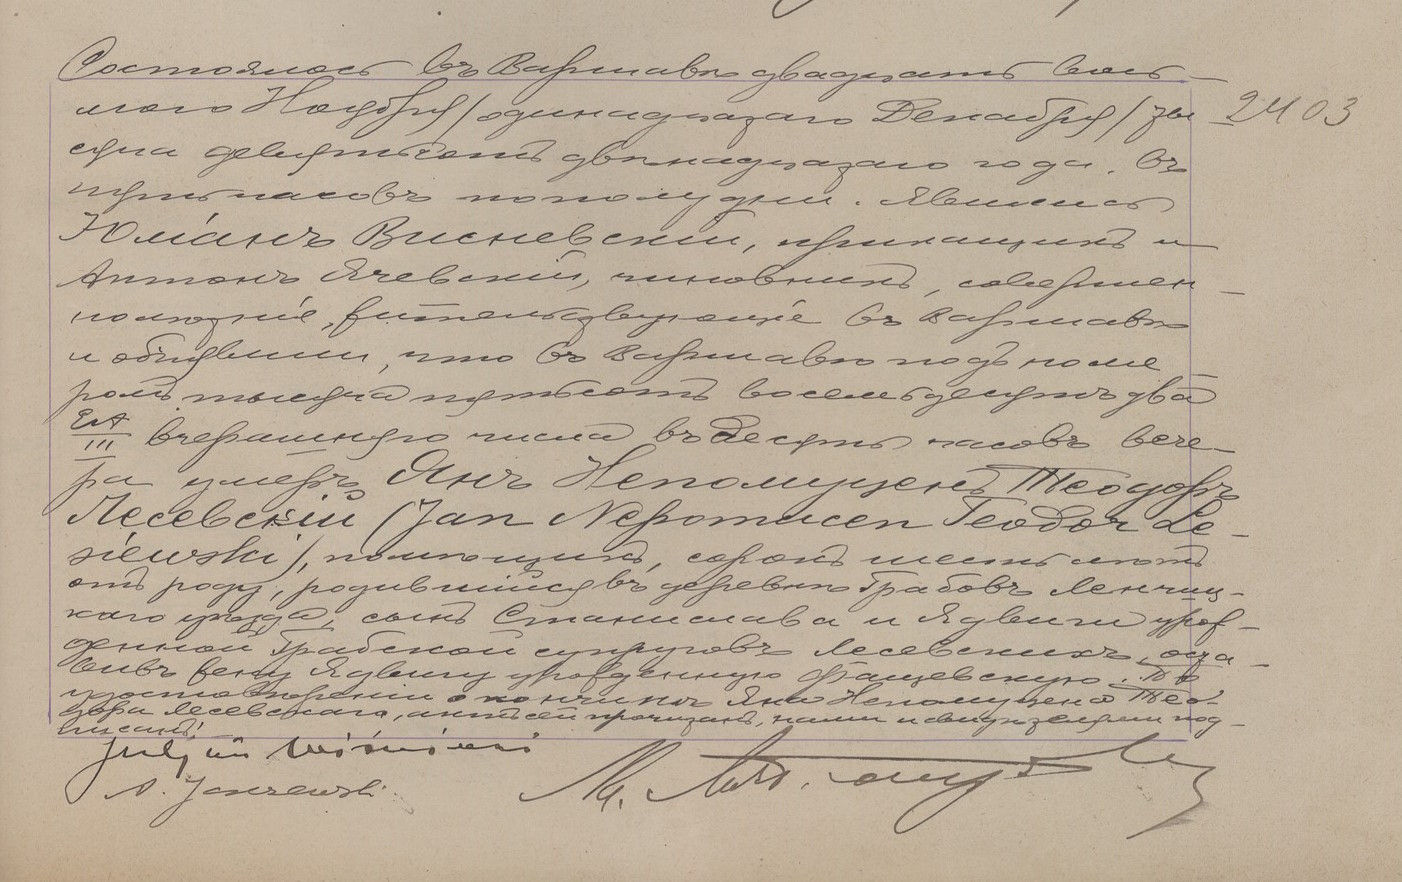 Состоялось въ Варшавѣ двадцать вось-
мого Ноября / одинадцатаго Декабря / ты- 2403
сяча девятьсотъ двѣнадцатаго года. въ
пять часовъ пополудни. Явились
Юліанъ Висневскій, прикащикъ и
Антонъ Ячевскій, чиновникъ, совершен-
нолѣтніе, жительствующіе въ Варшавѣ
и объявили, что въ Варшавѣ подъ номе-
ромъ тысяча пятьсотъ восемьдесятъ два
III вчерашняго числа въ Десять часовъ вече-
ра умеръ Янъ Непомуценъ Теодоръ
Лесевскій (Jan Nepomucen Teodor Le-
siewski), помѣщикъ, сорокъ шесть лѣтъ
отъ роду, родившійся въ деревнѣ Грабовъ Ленчиц-
каго уѣзда, сынъ Станислава и Ядвиги урож-
денной Грабской супруговъ Лесевскихъ, оста-
вивъ жену Ядвигу урожденную. По
удостовѣреніи о кончинѣ Яна Непомуцена Тео-
дора Лесевскаго, актъ сей прочитанъ, нами и свидѣтелями под-
писанъ.
Juljan Wiśniewski
A. Jaczewski